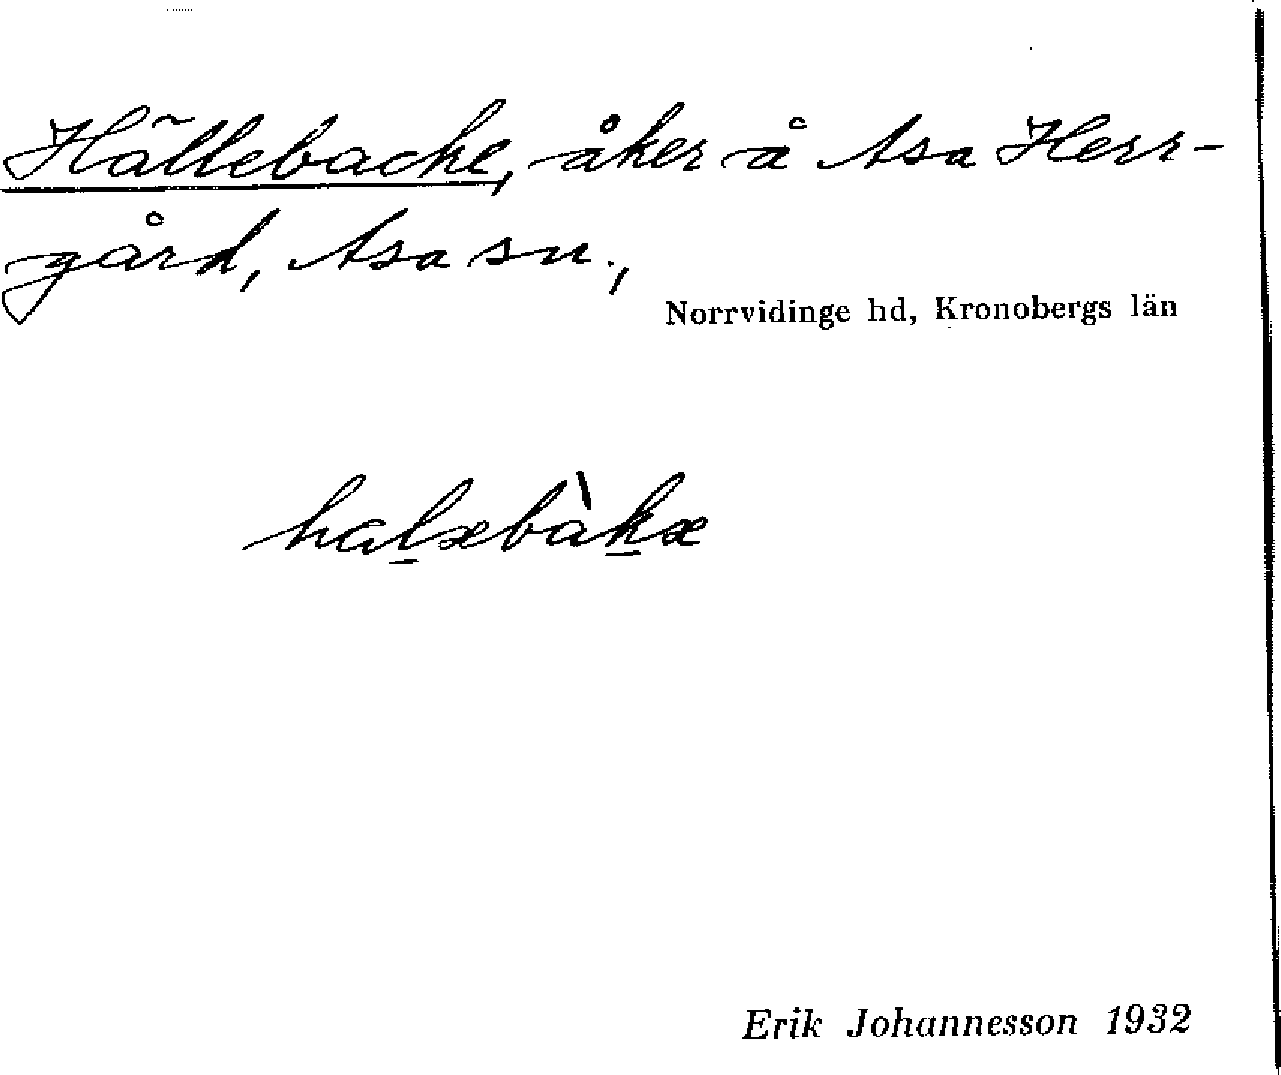 Hällebacke, åker å Asa Herr-
gård, Asa sn.,
Norrvidinge hd, Kronobergs län
hal̠æbàk̠æ
Erik Johannesson 1932